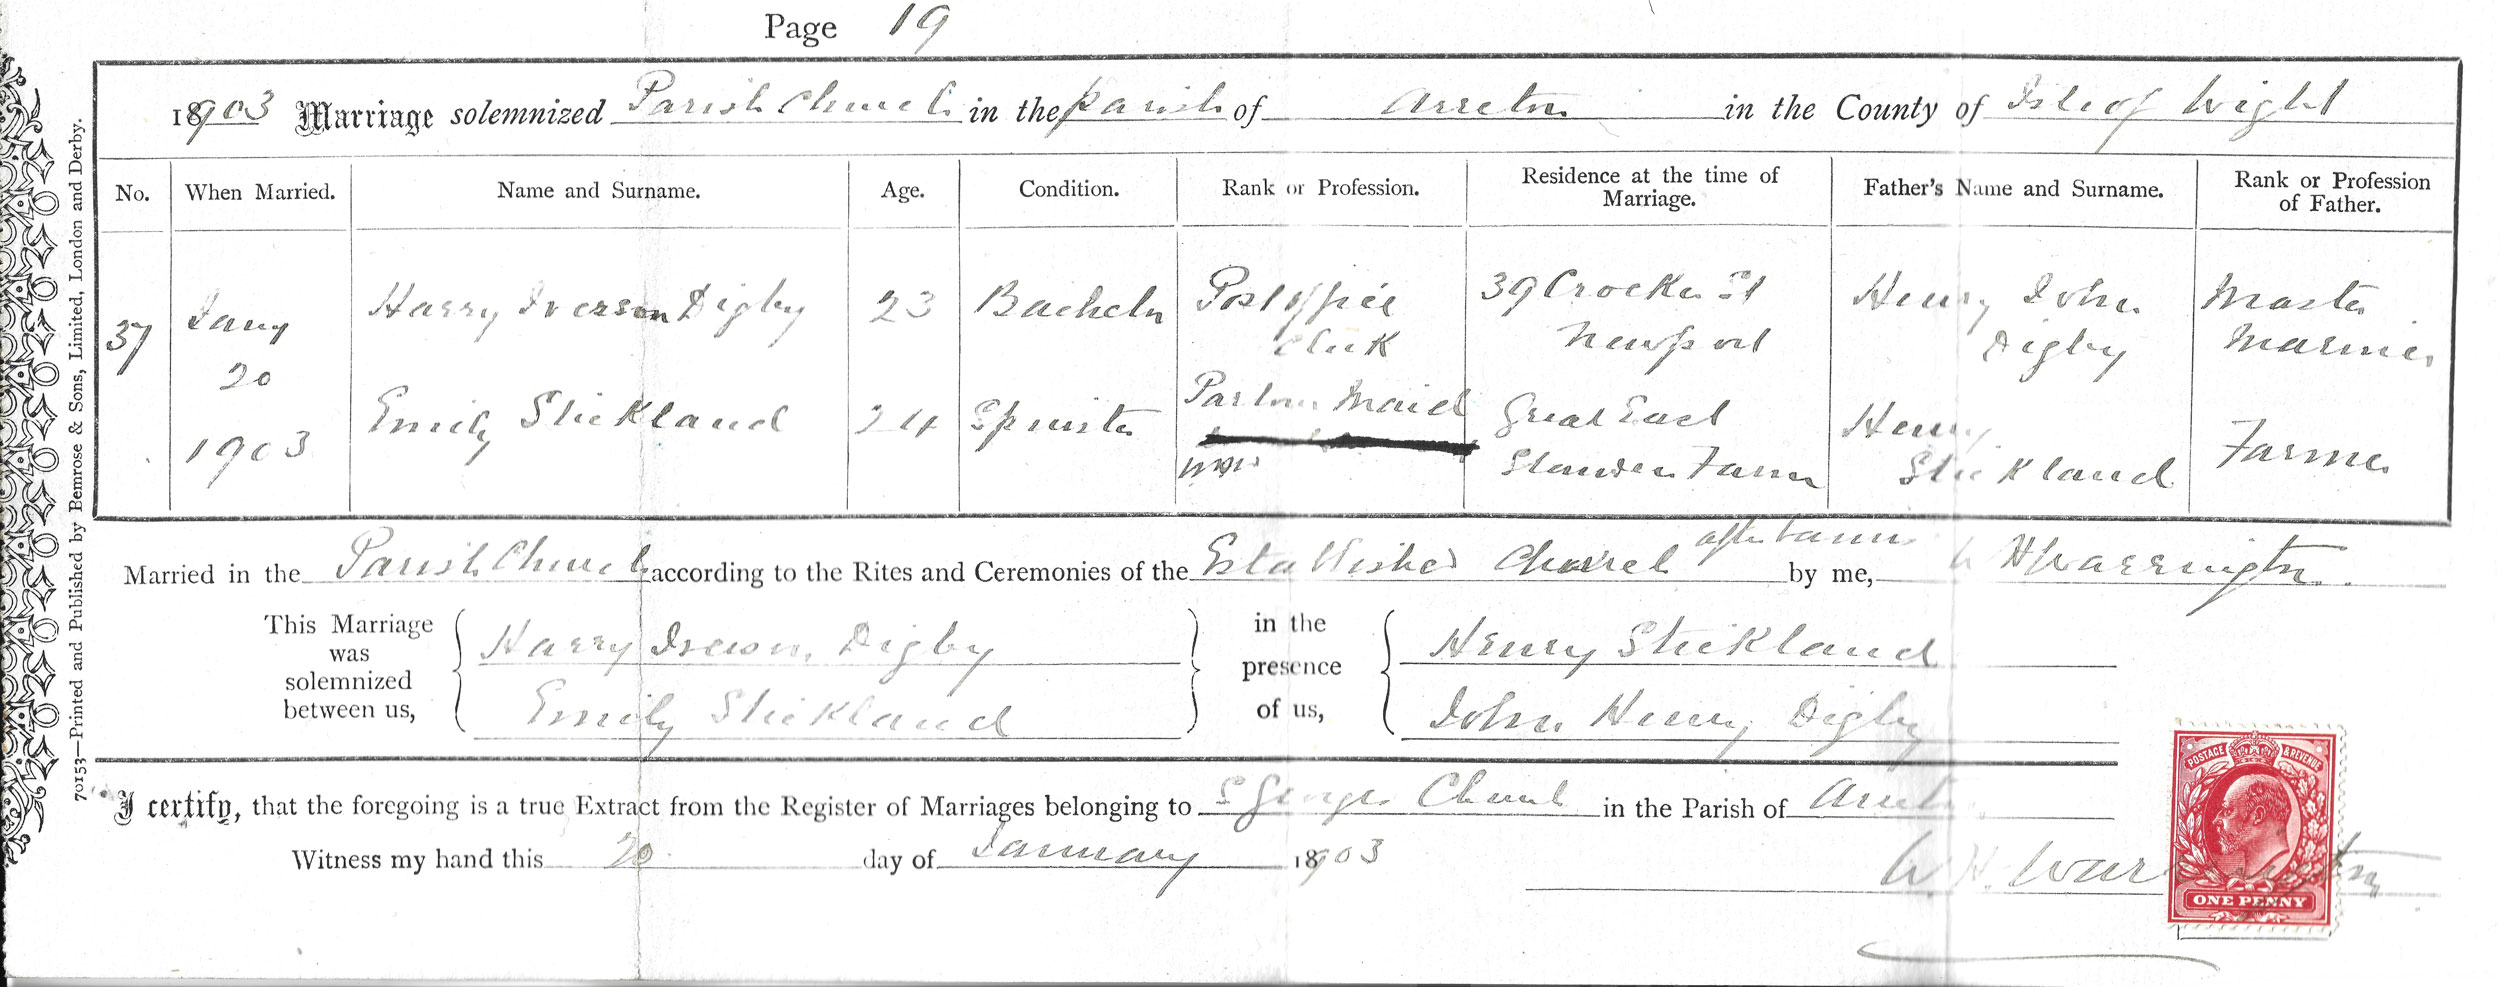 Page 19
1903 Marriage solemnized Parish Church in the parish of Arreton in the County of Isle of Wight
No. When Married. Name and Surname. Age. Condition. Rank or Profession. Residence at the time of Marriage. Father's Name and Surname. Rank or Profession of Father.
37 Jany 20 1903
Harry Iverson Digby 23 Bachelor Post Office Clerk 39 Crocker St Newport Henry John Digby Master Mariner
Emily Stickland 24 Spinster Parlour Maid Great East Standen Farm Henry Stickland Farmer
Married in the Parish Church according to the Rites and Ceremonies of the Established Church after banns by me, W H Warrington
This Marriage was solemnized between us,
Harry Iverson Digby
Emily Stickland
in the presence of us,
Henry Stickland
John Henry Digby
I certify, that the foregoing is a true Extract from the Register of Marriages belonging to S Georges Church in the Parish of Arreton
Witness my hand this 20 day of January 1903
W. H. Warrington
POSTAGE & REVENUE
ONE PENNY
70153—Printed and Published by Bemrose & Sons, Limited, London and Derby.